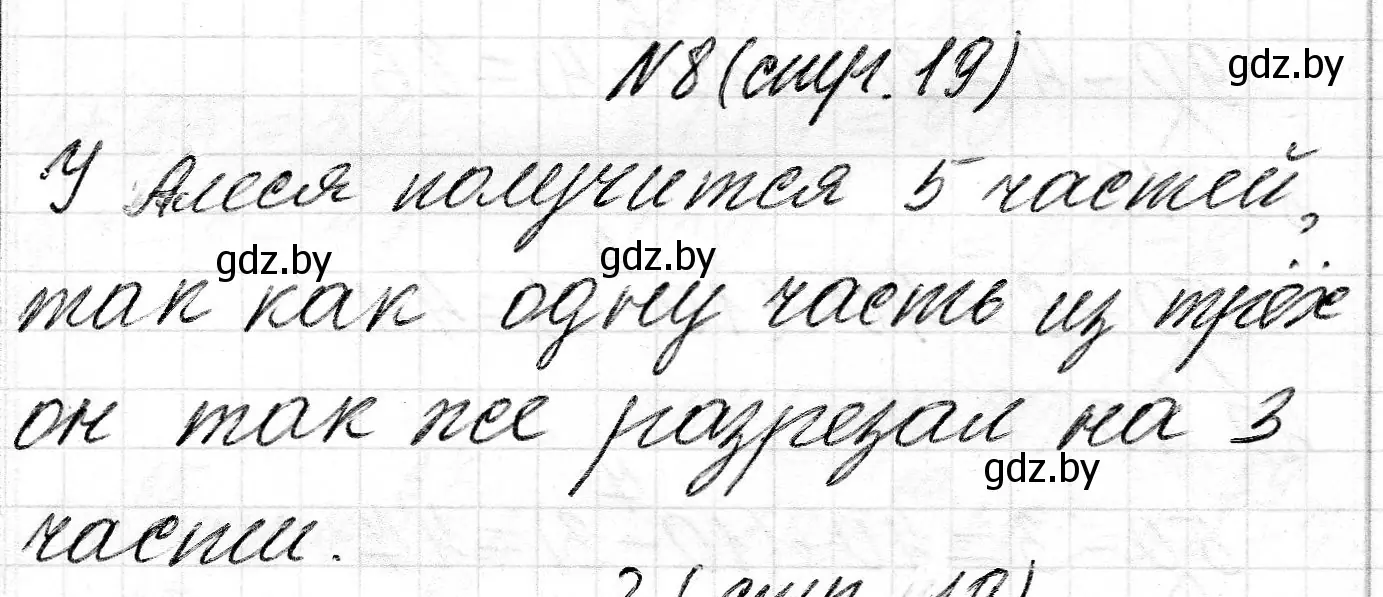 N8 (стр. 19)
gdz.by
У Алеся получится 5 частей,
gdz.by gdz.by
так как одну часть из трёх
он так же разрезал на 3
gdz.by
части.
(стр. 19)